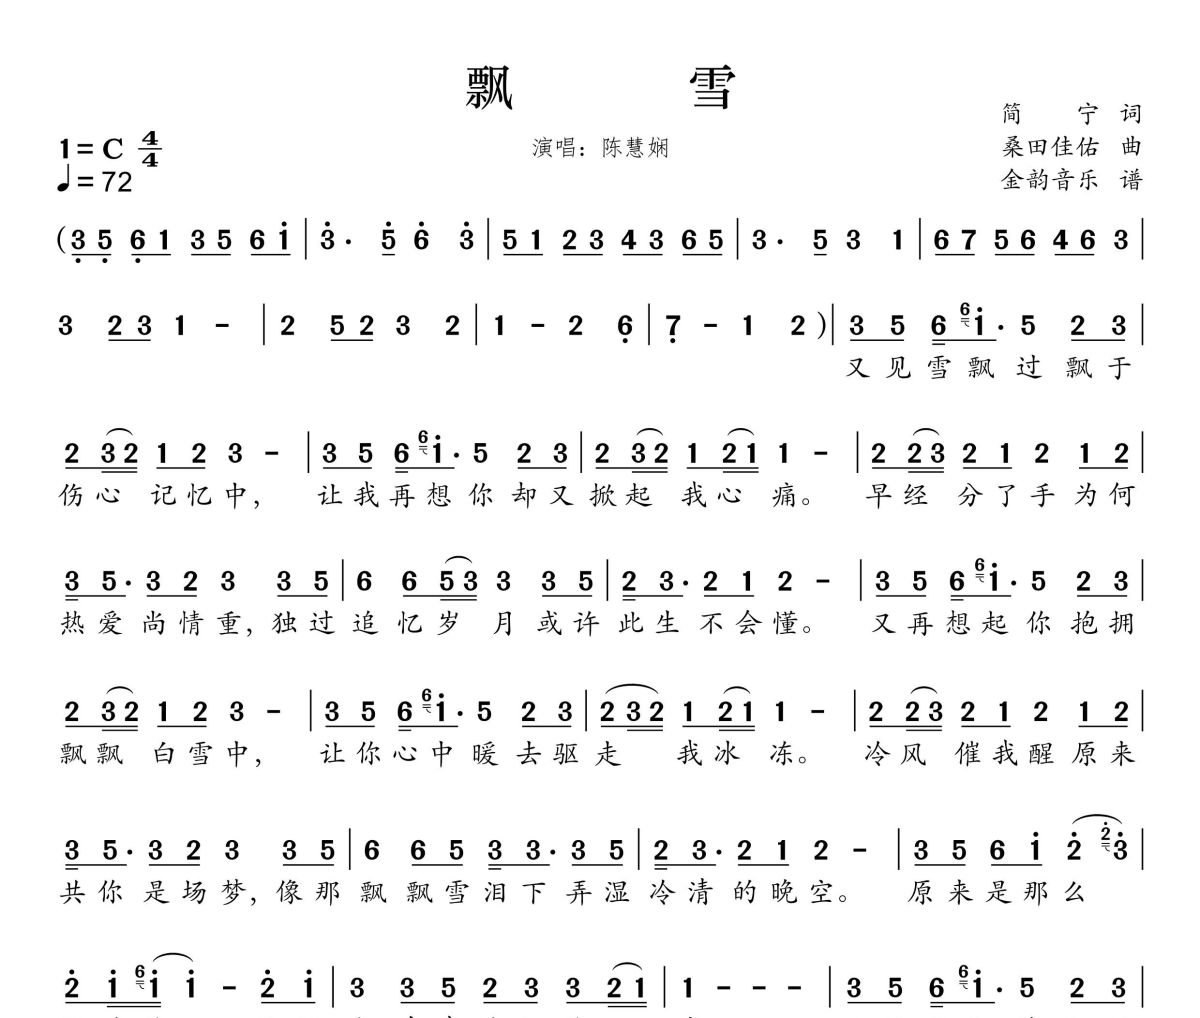 飘 雪
简 宁 词
1 = C 4/4
演唱：陈慧娴
桑田佳佑 曲
♩= 72
金韵音乐 谱
( 3̣ 5̣ 6̣ 1 3 5 6 i | 3̇ · 5̇ 6̇ 3̇ | 5 1 2 3 4 3 6 5 | 3 · 5 3 1 | 6 7 5 6 4 6 3 |
3 2 3 1 - | 2 5 2 3 2 | 1 - 2 6̣ | 7̣ - 1 2 ) | 3 5 6 6 i · 5 2 3 |
又见雪飘过飘于
2 3 2 1 2 3 - | 3 5 6 6 i · 5 2 3 | 2 3 2 1 2 1 1 - | 2 2 3 2 1 2 1 2 |
伤心 记忆中， 让我再想你却又掀起 我心 痛。 早经 分了手为何
3 5 · 3 2 3 3 5 | 6 6 5 3 3 3 5 | 2 3 · 2 1 2 - | 3 5 6 6 i · 5 2 3 |
热爱尚情重，独过追忆岁 月或许此生不会懂。 又再想起你抱拥
2 3 2 1 2 3 - | 3 5 6 6 i · 5 2 3 | 2 3 2 1 2 1 1 - | 2 2 3 2 1 2 1 2 |
飘飘 白雪中， 让你心中暖去驱走 我冰 冻。 冷风 催我醒原来
3 5 · 3 2 3 3 5 | 6 6 5 3 3 · 3 5 | 2 3 · 2 1 2 - | 3 5 6 i 2̇ 2̇ 3̇ |
共你是场梦，像那飘飘雪泪下弄湿冷清的晚空。 原来是那么
2̇ i 6 i i - 2̇ i | 3 3 5 2 3 3 2 1 | 1 - - - | 3 5 6 6 i · 5 2 3 |